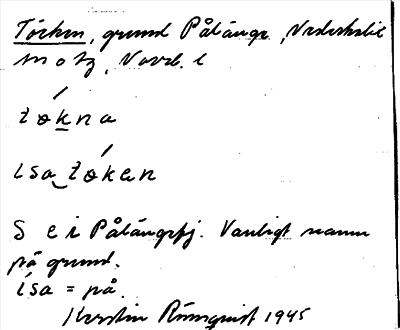 Törken, grund Pålänge, Nederkalix
tøkna
isa tøken
S e i Pålängefj. Vanligt namn
på grund.
isa = på.
Kerstin Rönnqvist 1945